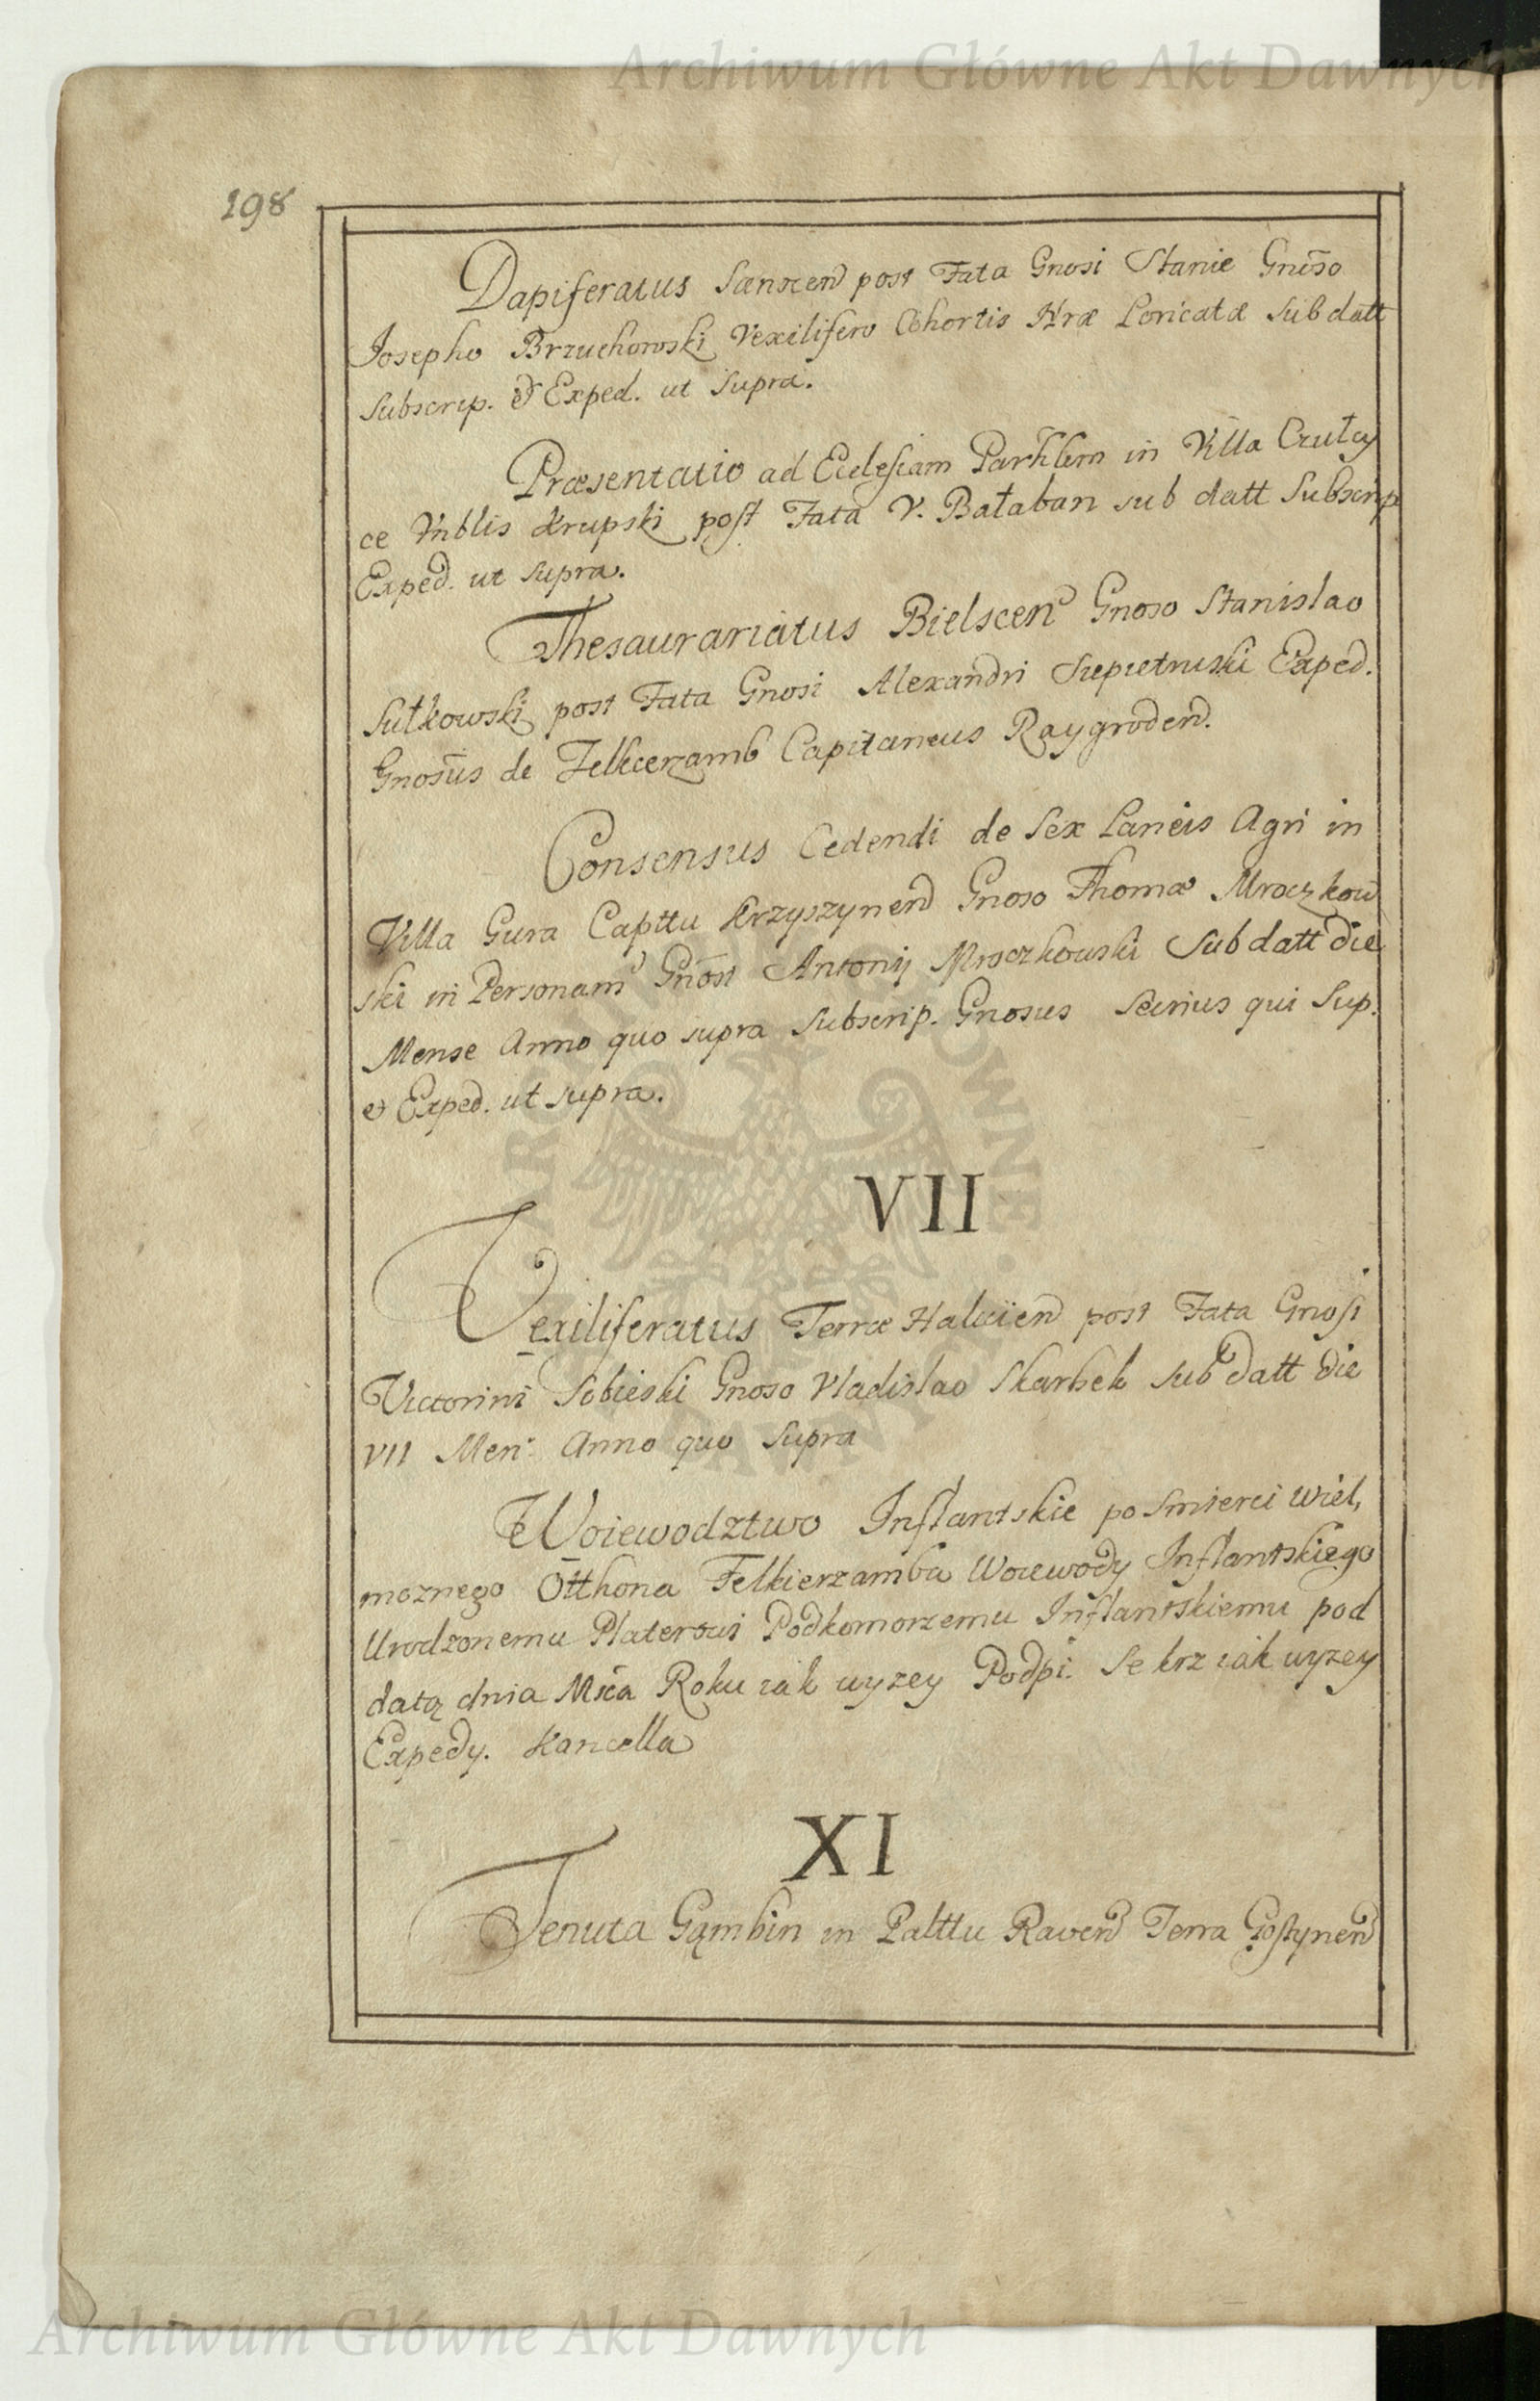 Archiwum Główne Akt Dawnych
198
Dapiferatus post Fata Gnosi Stanie Gnoso
Josepho Brzuchowski Vexilifero Cohortis Nræ Loricatæ sub datt
Subscrip. & Exped. ut supra.
Præsentatio ad Eclesiam in Villa Czuły
ce Krupski post Fata V. Bałaban sub datt Subscrip
Exped. ut supra.
Thesaurariatus Bielscen Gnoso Stanislao
Sułkowski post Fata Gnosi Alexandri Exped.
Gnosus de Felkcerzamb Capitaneus Raygroden.
Consensus Cedendi de Sex Laneis Agri in
Villa Gura Capttu Krzyszynen Gnoso Thomæ Mroczkow
ski in Personam Gnosi Antonij Mroczkowski Sub datt die
Mense Anno quo supra Subscrip. Gnosus Secrius qui Sup.
et Exped. ut supra.
VII
Vexiliferatus Terræ Halicien post Fata Gnosi
Victorini Sobieski Gnoso Vladislao Skarbek sub datt die
VII Men: Anno quo Supra
Woiewodztwo Inflantskie po Smierci Wiel,
moznego Otthona Felkierzamba Woiewody Inflantskiego
Urodzonemu Platerowi Podkomorzemu Inflantskiemu pod
datą dnia Mca Roku iak wyzey Podpi. Sekrz iak wyzey
Expedy. Kancella
XI
Tenuta Gąmbin in Palttu Raven Terra Gostynen
Archiwum Główne Akt Dawnych